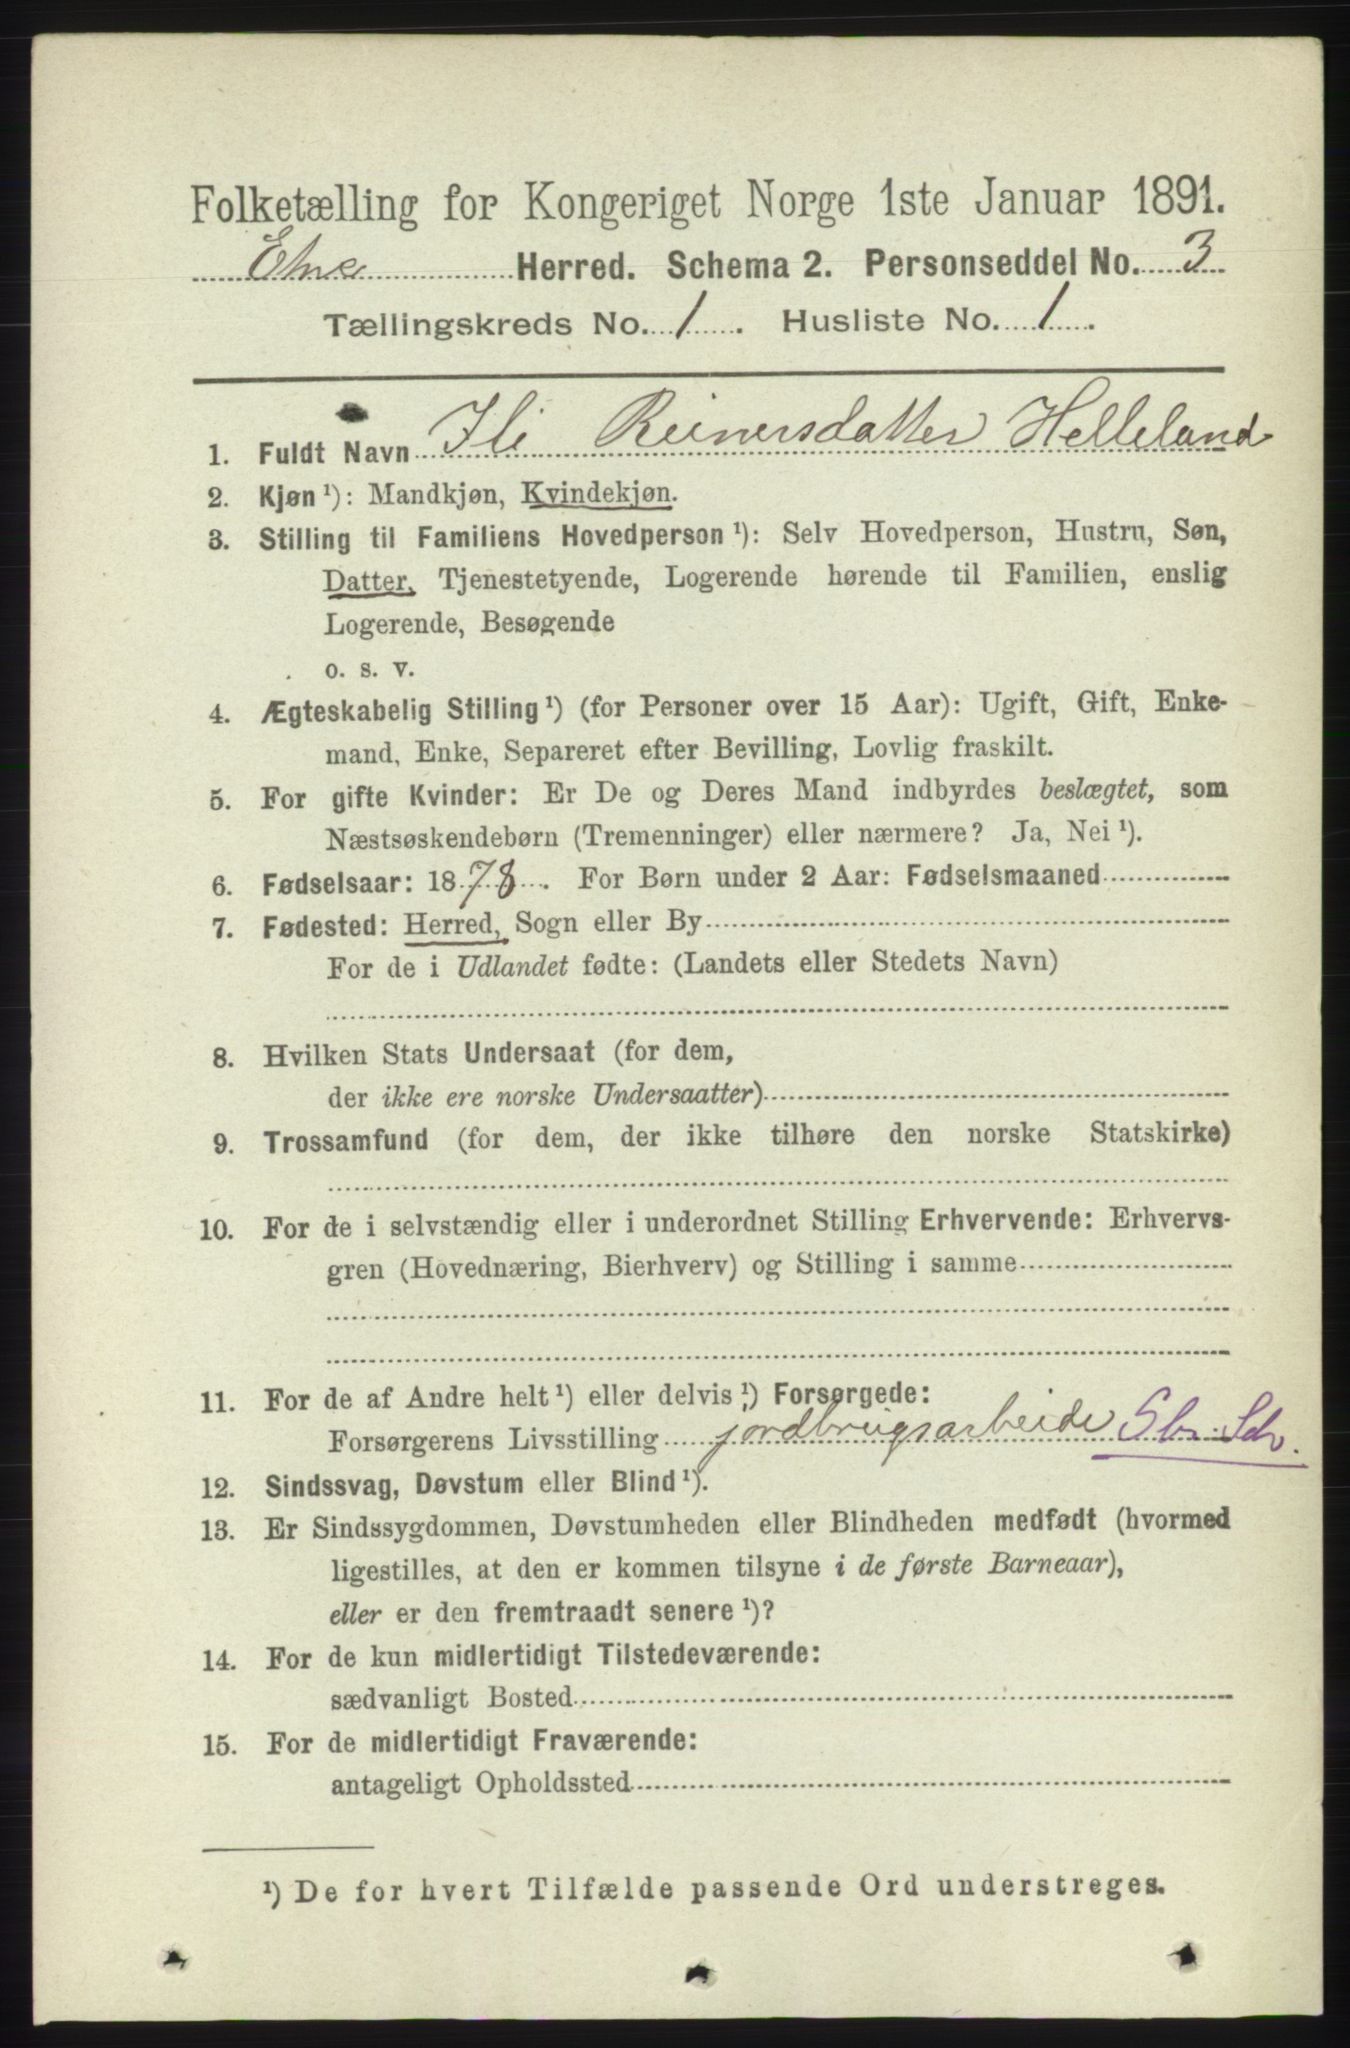 Folketælling for Kongeriget Norge 1ste Januar 1891.
Etne Herred. Schema 2. Personseddel No. 3
Tællingskreds No. 1. Husliste No. 1.
1. Fuldt Navn Ili Reinersdatter Helleland
2. Kjøn ¹): Mandkjøn, Kvindekjøn.
3. Stilling til Familiens Hovedperson ¹): Selv Hovedperson, Hustru, Søn,
Datter, Tjenestetyende, Logerende hørende til Familien, enslig
Logerende, Besøgende
o. s. v.
4. Ægteskabelig Stilling ¹) (for Personer over 15 Aar): Ugift, Gift, Enke-
mand, Enke, Separeret efter Bevilling, Lovlig fraskilt.
5. For gifte Kvinder: Er De og Deres Mand indbyrdes beslægtet, som
Næstsøskendebørn (Tremenninger) eller nærmere? Ja, Nei ¹).
6. Fødselsaar: 1878. For Børn under 2 Aar: Fødselsmaaned
7. Fødested: Herred, Sogn eller By
For de i Udlandet fødte: (Landets eller Stedets Navn)
8. Hvilken Stats Undersaat (for dem,
der ikke ere norske Undersaatter)
9. Trossamfund (for dem, der ikke tilhøre den norske Statskirke)
10. For de i selvstændig eller i underordnet Stilling Erhvervende: Erhvervs-
gren (Hovednæring, Bierhverv) og Stilling i samme
11. For de af Andre helt ¹) eller delvis ¹) Forsørgede:
Forsørgerens Livsstilling jordbrugsarbeide
12. Sindssvag, Døvstum eller Blind ¹).
13. Er Sindssygdommen, Døvstumheden eller Blindheden medfødt (hvormed
ligestilles, at den er kommen tilsyne i de første Barneaar),
eller er den fremtraadt senere ¹)?
14. For de kun midlertidigt Tilstedeværende:
sædvanligt Bosted
15. For de midlertidigt Fraværende:
antageligt Opholdssted
¹) De for hvert Tilfælde passende Ord understreges.